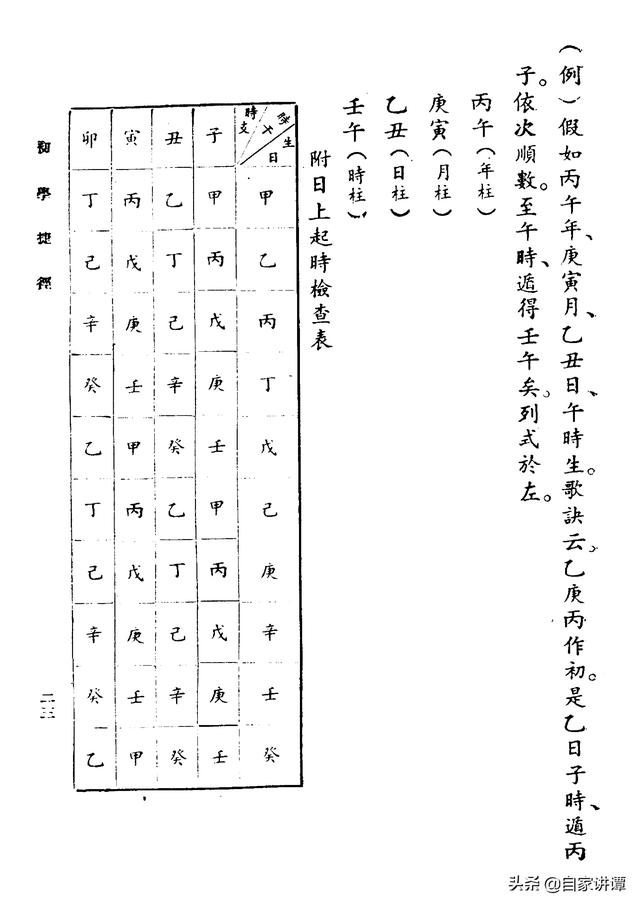 (例)假如丙午年、庚寅月、乙丑日、午時生。歌訣云、乙庚丙作初。是乙日子時、遁丙
子。依次順數。至午時、遁得壬午矣。列式於左。
丙午(年柱)
庚寅(月柱)
乙丑(日柱)
壬午(時柱)
附日上起時檢查表
生日 時干 時支
甲乙丙丁戊己庚辛壬癸
子甲丙戊庚壬甲丙戊庚壬
丑乙丁己辛癸乙丁己辛癸
寅丙戊庚壬甲丙戊庚壬甲
卯丁己辛癸乙丁己辛癸乙
學捷徑
二三
头条 @自家讲谭